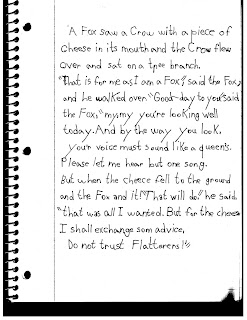 A Fox saw a Crow with a piece of
cheese in its mouth and the Crow flew
over and sat on a tree branch.
"That is for me as I am a Fox", said the Fox,
and he walked over. "Good-day to you" said
the Fox, "my, my you're looking well
today. And by the way you look,
your voice must sound like a queen's.
Please let me hear but one song.
But when the cheece fell to the ground
and the Fox and it! "That will do." he said.
"that was all I wanted. But for the cheese
I shall exchange som advice,
Do not trust Flatterers!"